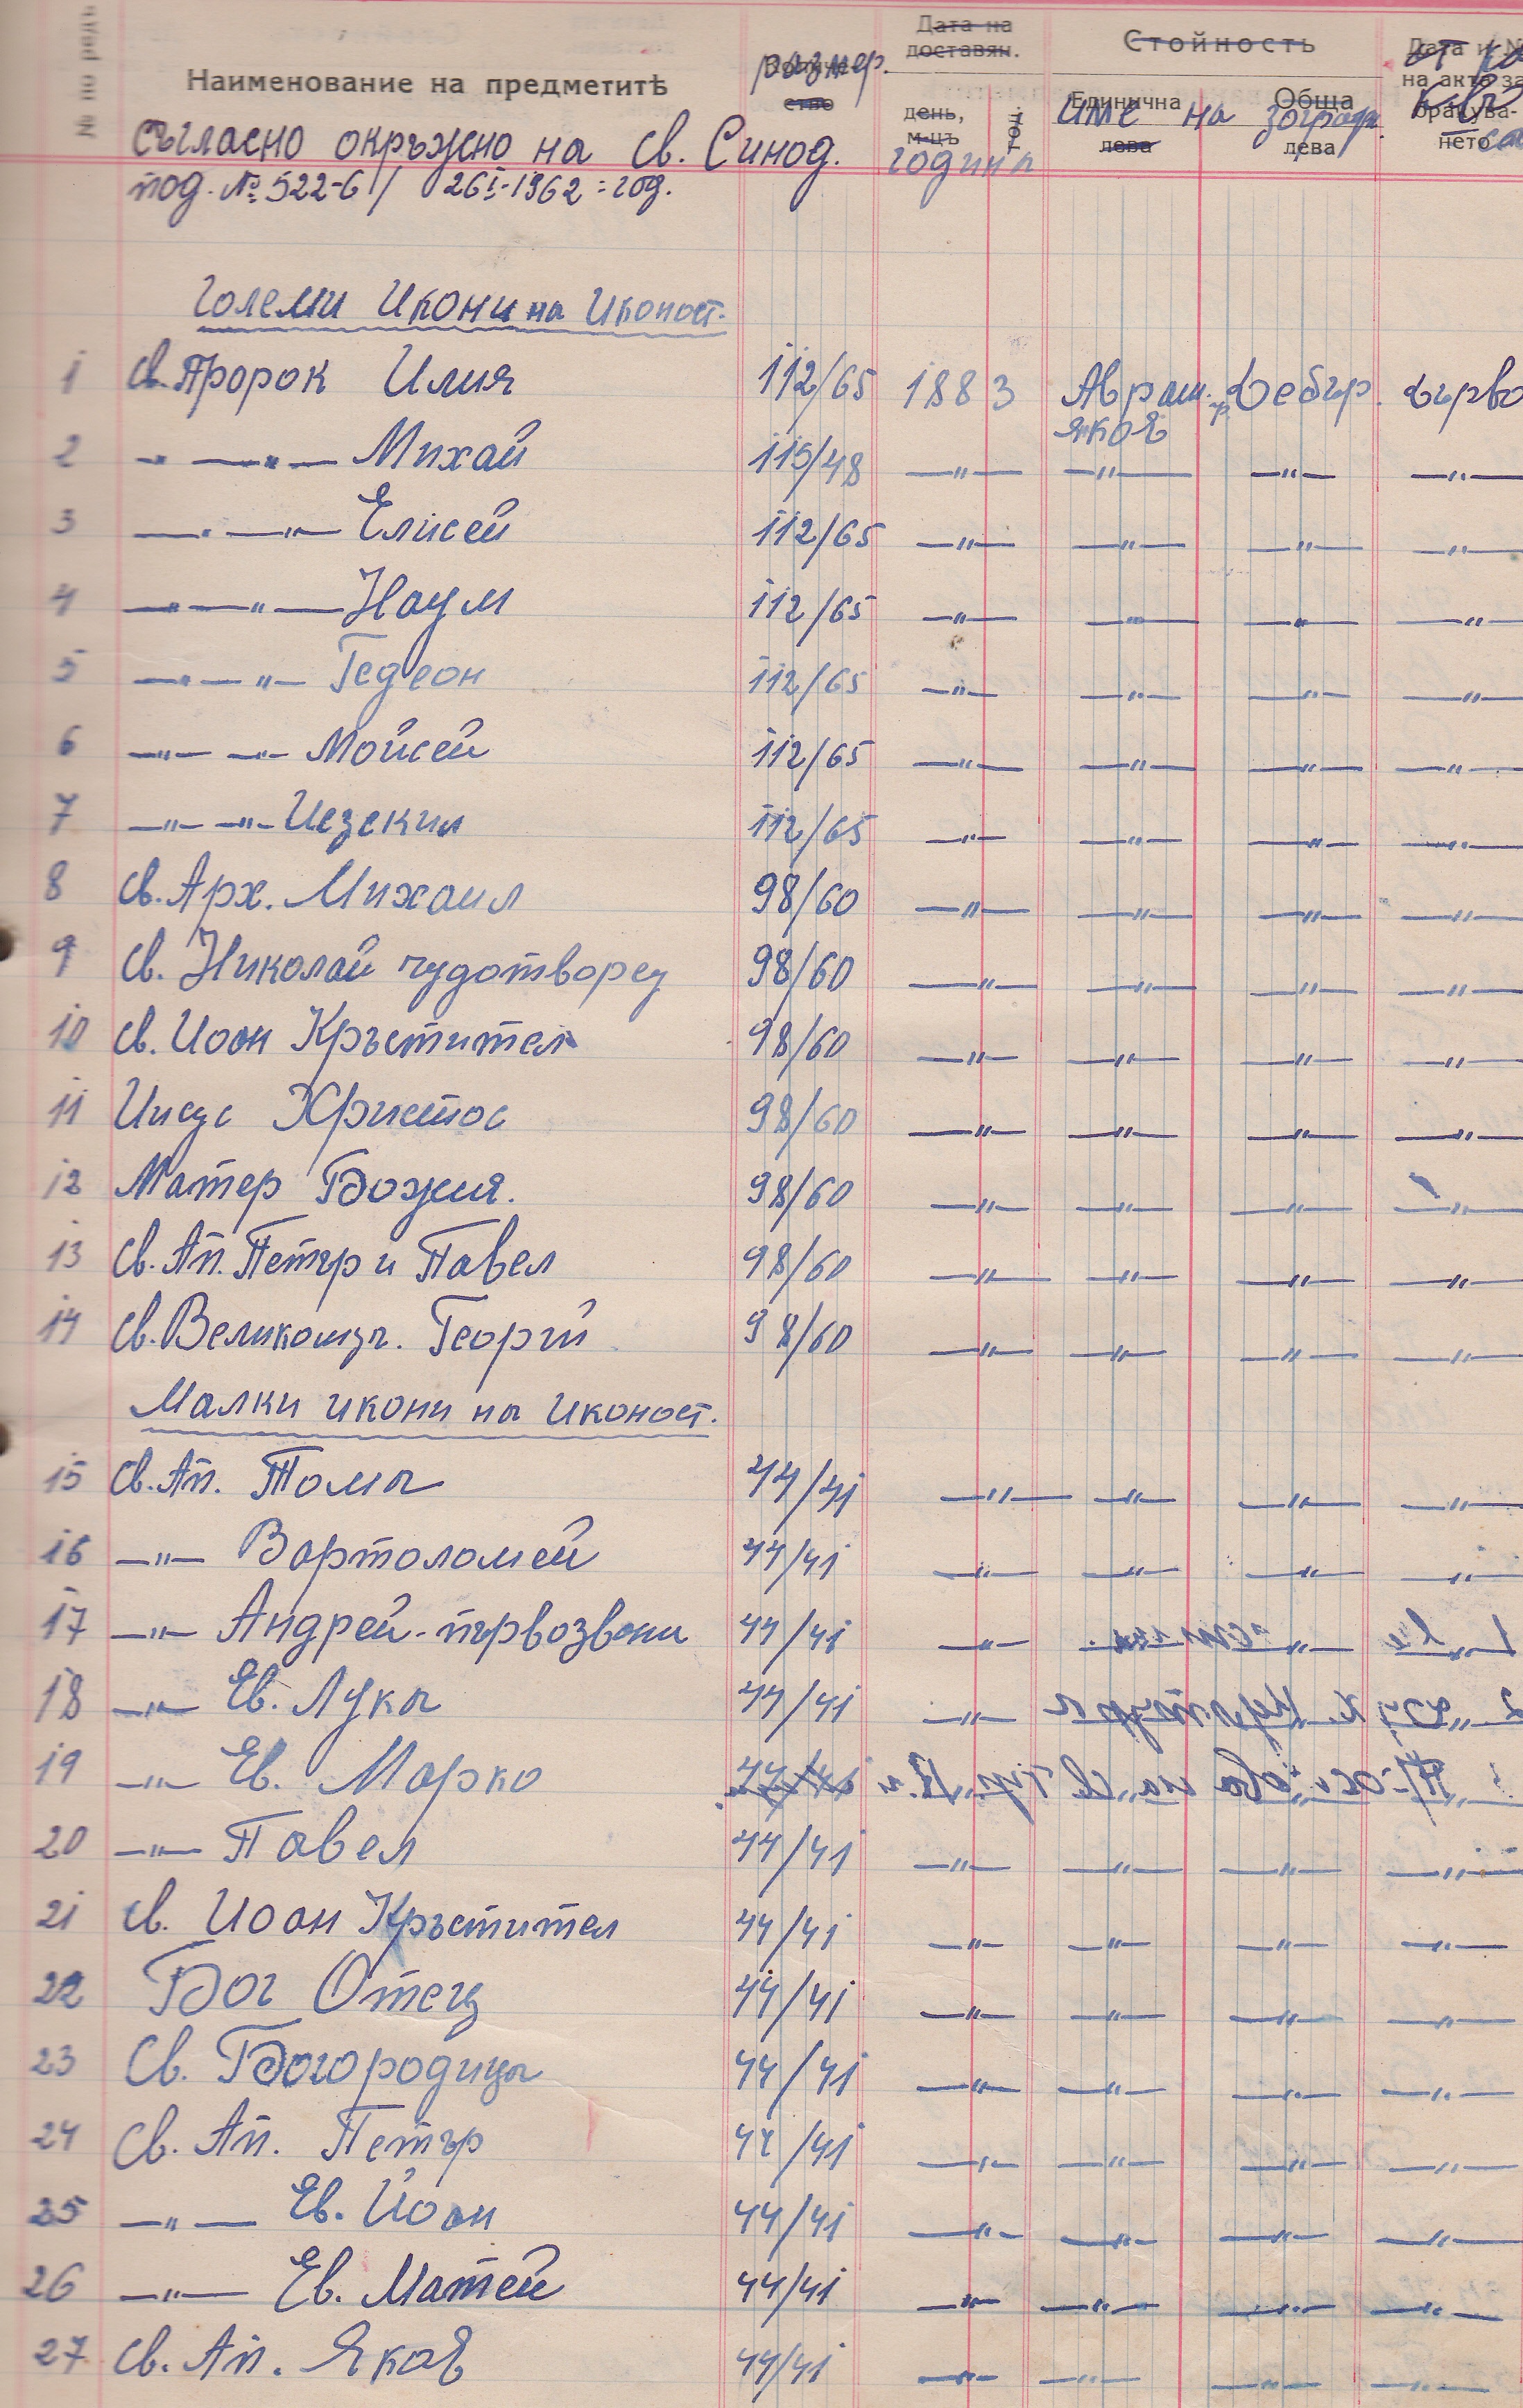 № по реда
Наименование на предметитѣ
размер.
Дата на доставян.
Стойность
Дата и №
на акта за
день, м-цъ
год.
Единична лева
Обща лева
нето
име на зограф.
съгласно окръжно на св. Синод.
година
под. № 522-6/ 26 I-1962 = год.
Големи Икони на Иконост.
1 Св. Пророк Илия 112/65 1883 Аврам. Дебър. дърво
яков
2 —"— —"— Михай 115/48 —"— —"— —"— —"—
3 —"— —"— Елисей 112/65 —"— —"— —"— —"—
4 —"— —"— Наум 112/65 —"— —"— —"— —"—
5 —"— —"— Гедеон 112/65 —"— —"— —"— —"—
6 —"— —"— Мойсей 112/65 —"— —"— —"— —"—
7 —"— —"— Иезекил 112/65 —"— —"— —"— —"—
8 св. Арх. Михаил 98/60 —"— —"— —"— —"—
9 св. Николай чудотворец 98/60 —"— —"— —"— —"—
10 св. Иоан Кръстител 98/60 —"— —"— —"— —"—
11 Иисус Христос 98/60 —"— —"— —"— —"—
12 Матер Божия. 98/60 —"— —"— —"— —"—
13 св. Ап. Петър и Павел 98/60 —"— —"— —"— —"—
14 св. Великомъч. Георгй 98/60 —"— —"— —"— —"—
Малки икони на Иконост.
15 св. Ап. Тома 44/41 —"— —"— —"— —"—
16 —"— Вартоломей 44/41 —"— —"— —"— —"—
17 —"— Андрей-първозвани 44/41 —"— —"—
18 —"— Ев. Лука 44/41 —"—
19 —"— Ев. Марко 44/41
20 —"— Павел 44/41 —"— —"— —"— —"—
21 св. Иоан Кръстител 44/41 —"— —"— —"— —"—
22 Бог Отец 44/41 —"— —"— —"— —"—
23 Св. Богородица 44/41 —"— —"— —"— —"—
24 Св. Ап. Петър 44/41 —"— —"— —"— —"—
25 —"— Ев. Йоан 44/41 —"— —"— —"— —"—
26 —"— Ев. Матей 44/41 —"— —"— —"— —"—
27 св. Ап. Яков 44/41 —"— —"— —"— —"—